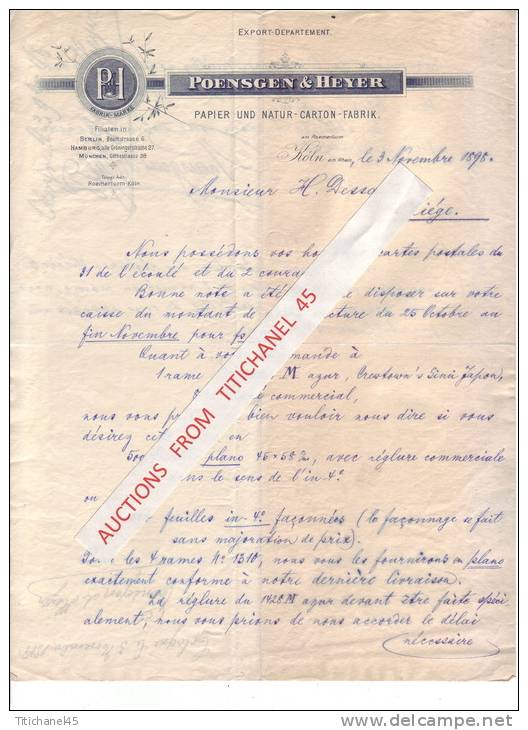 EXPORT-DEPARTEMENT.
PH
FABRIK-MARKE
POENSGEN & HEYER
PAPIER UND NATUR-CARTON-FABRIK.
Filialen in
BERLIN,
HAMBURG, alte Gröningerstrasse 27.
MÜNCHEN, 38
Roemerturm-Köln.
am Roemerturm
Köln am Rhein, le 3 Novembre 1898.
Monsieur H.
Liége.
Nous possédons vos cartes postales du
31 de l'écoulé et du 2
Bonne note a été disposer sur votre
caisse du montant de du 25 Octobre au
fin Novembre pour
Quant à à
1 rame M azur, Japon),
commercial,
nous vous bien vouloir nous dire si vous
désirez en
500 plano 45 × 58, avec réglure commerciale
dans le sens de l'in-4°
ou
feuilles in-4° façonnées (le façonnage se fait
sans majoration de prix).
les 4 rames N° 1310, nous vous les fournirons en plano
exactement conforme à notre dernière livraison.
La réglure du 1428 M azur devant être faite spéci
alement, nous vous prions de nous accorder le délai
nécessaire
AUCTIONS FROM TITICHANEL 45
Titichane45
www.delcampe.net